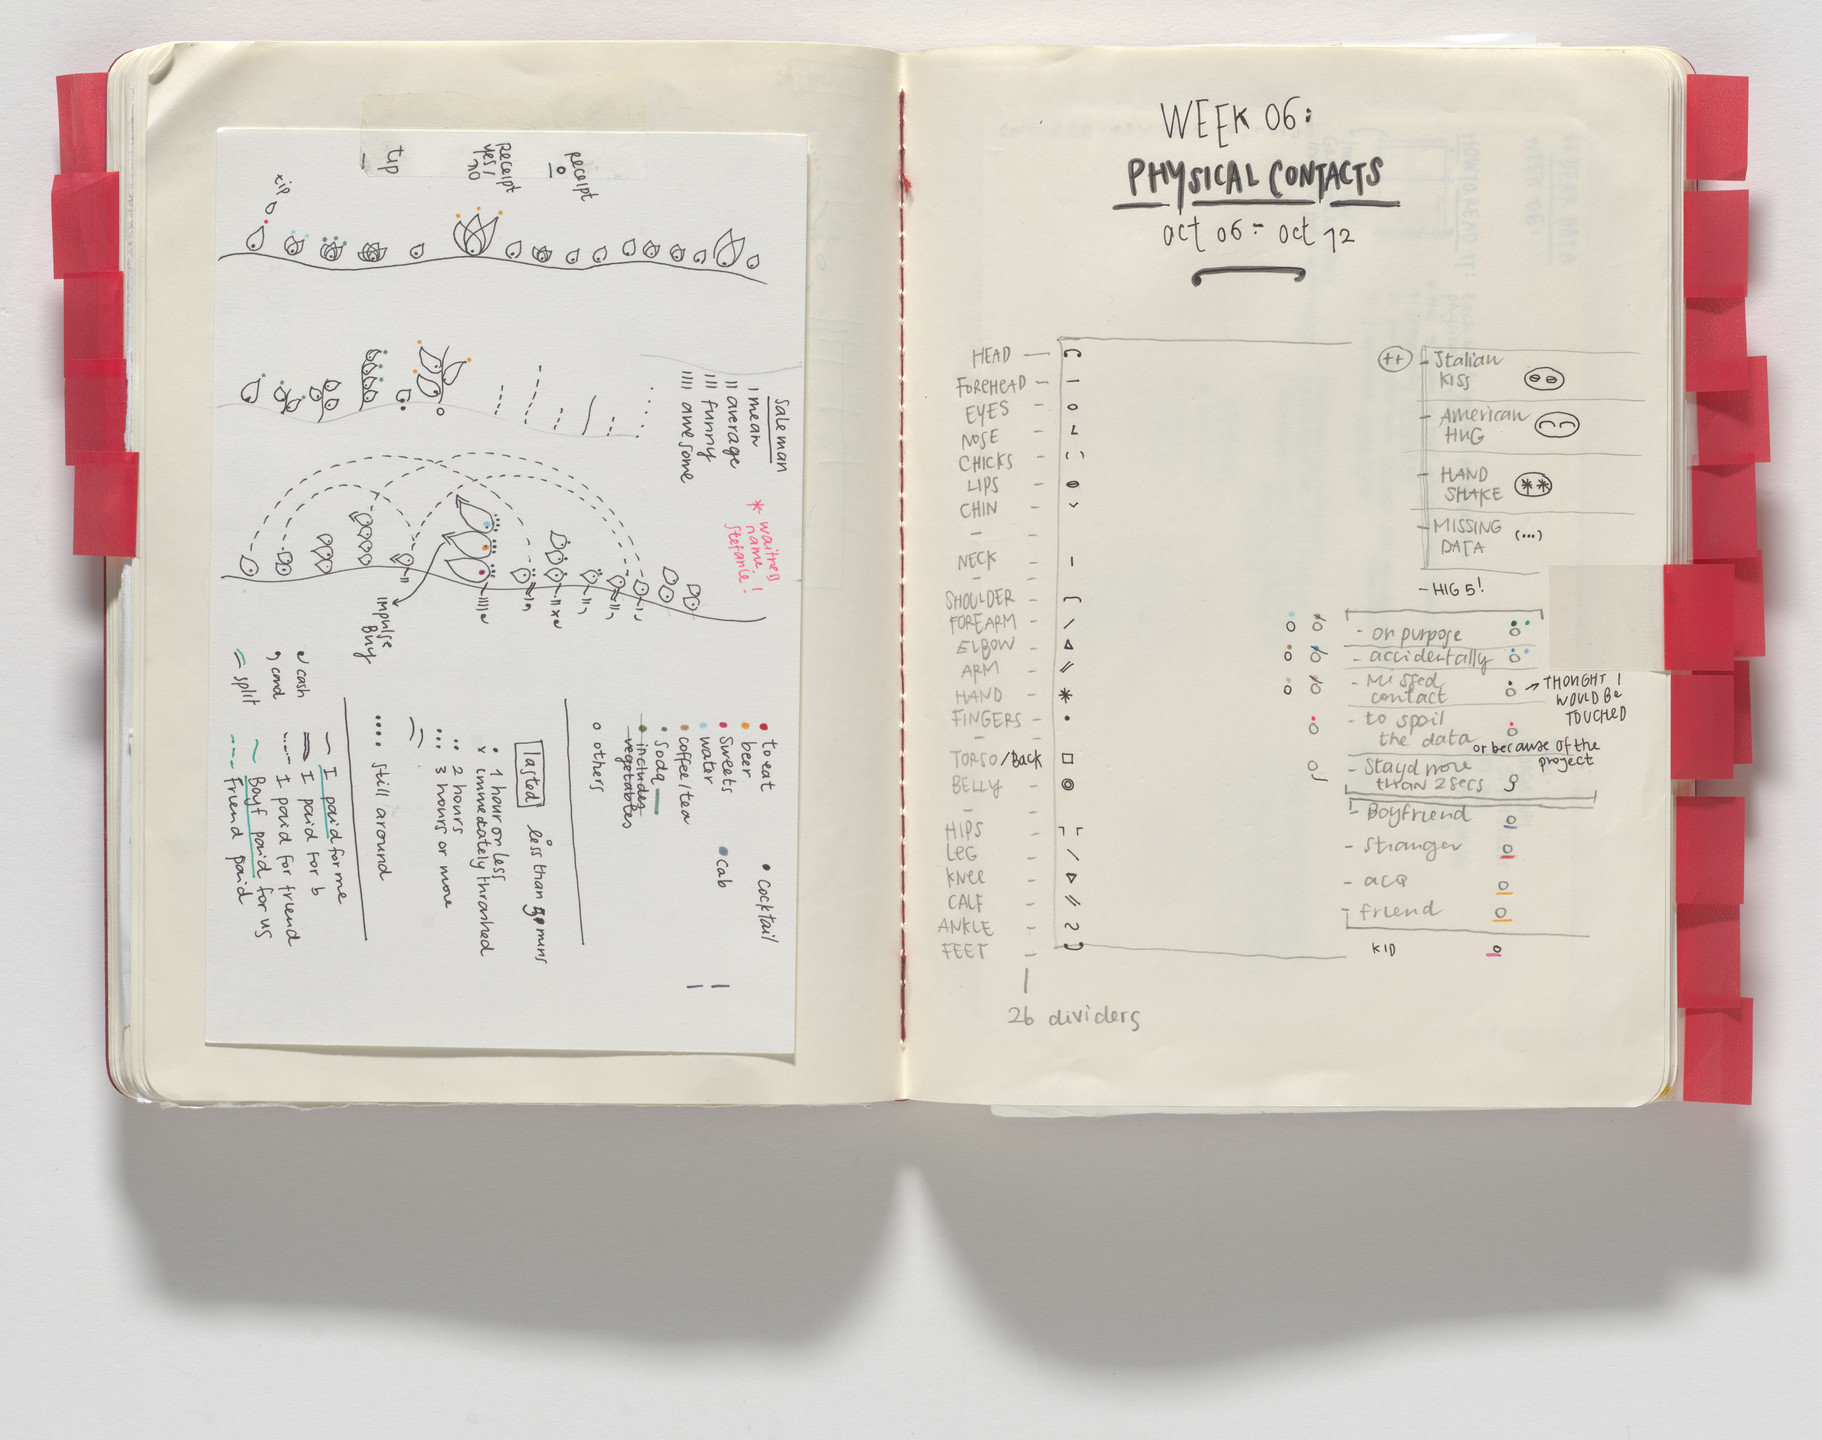 receipt
receipt
yes/
no
tip
tip
Saleman
1 mean
11 average
111 funny
1111 awesome
* waitress
name!
stefanie!
Impulse
Buy
✓ cash
, card
= split
to eat
beer
sweets
water
coffee/tea
soda
includes
vegetables
others
cocktail
cab
lasted
less than 30 mins
1 hour or less
x immediately thrashed
2 hours
3 hours or more
still around
I paid for me
I paid for b
I paid for friend
Boyf paid for us
Friend paid
WEEK 06:
PHYSICAL CONTACTS
oct 06 - oct 12
HEAD
FOREHEAD
EYES
NOSE
CHICKS
LIPS
CHIN
NECK
SHOULDER
FOREARM
ELBOW
ARM
HAND
FINGERS
TORSO/Back
BELLY
HIPS
LEG
KNEE
CALF
ANKLE
FEET
26 dividers
++
Italian
KISS
American
HUG
HAND
SHAKE
MISSING
DATA (...)
- HIG 5!
- on purpose
- accidentally
- Missed
contact
→ THOUGHT I
WOULD BE
TOUCHED
- to spoil
the data
or because of the
project
- Stayd more
than 2 secs
- Boyfriend
- stranger
- acq
- friend
KID